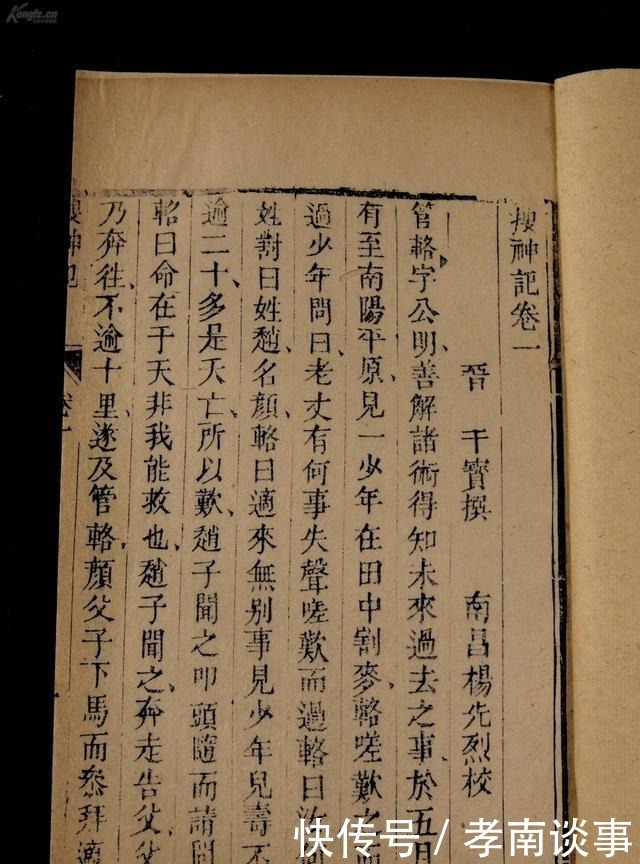 Kongfz.cn
搜神記卷一
晉 干寶撰 南昌楊先烈校
管輅字公明善解諸術得知未來過去之事於五月
有至南陽平原見一少年在田中割麥輅嗟歎之
過少年問曰老丈有何事失聲嗟歎而過輅曰汝
姓對曰姓趙名顔輅曰適來無別事見少年兒壽不
逾二十多是夭亡所以歎趙子聞之叩頭隨而請問
輅曰命在于天非我能救也趙子聞之奔走告父父
乃奔往不逾十里遂及管輅顔父子下馬而叅拜適
搜神記 卷一
快传号/孝南谈事